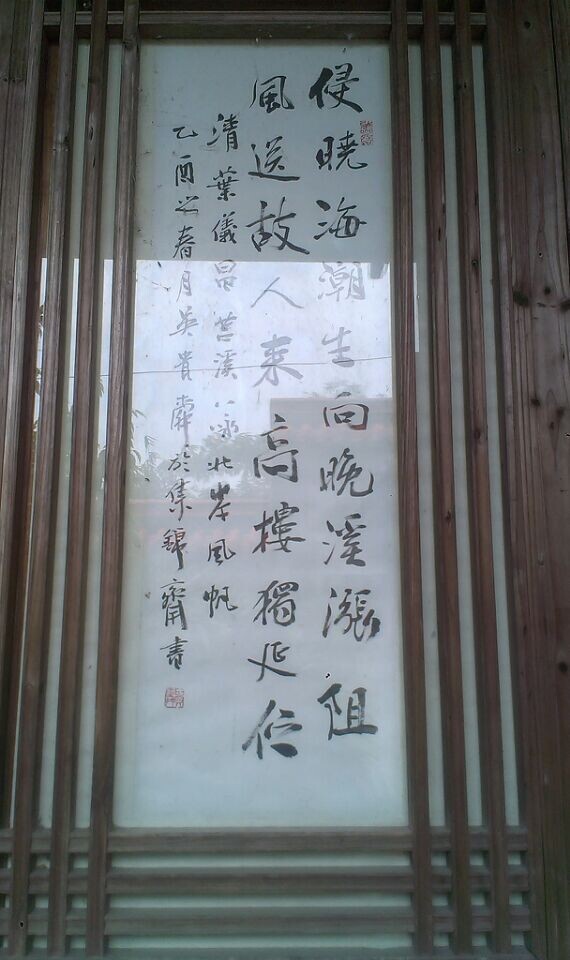 侵曉海潮生向晚溪漲阻
風送故人來高樓獨延伫
清葉儀昌莒溪八詠北岸風帆
乙酉之春月吴貴舜於集錦齋書